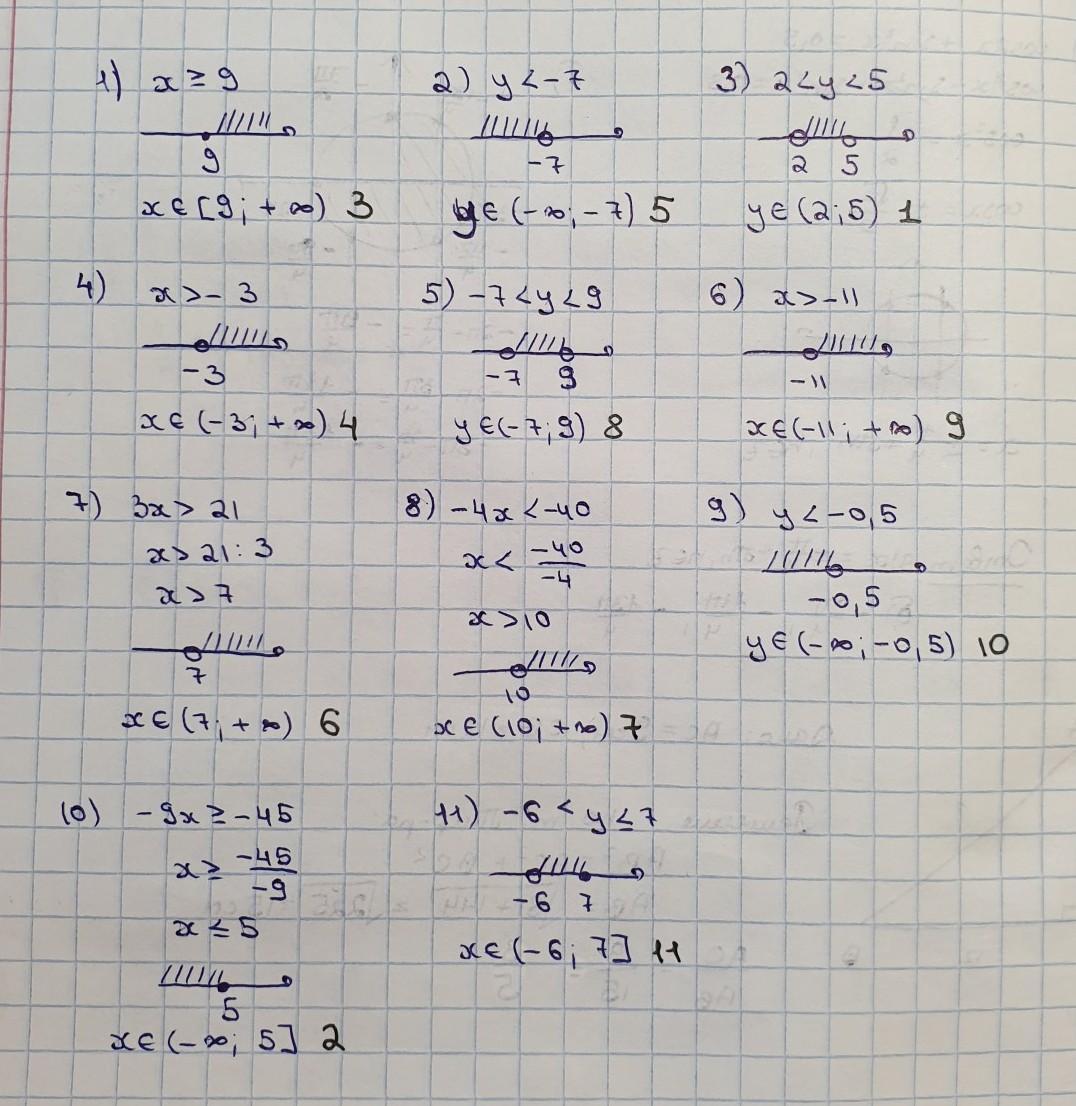 1) x ≥ 9
9
x ∈ [9; + ∞) 3
2) y < -7
-7
y ∈ (-∞; -7) 5
3) 2 < y < 5
2 5
y ∈ (2; 5) 1
4) x > - 3
-3
x ∈ (-3; + ∞) 4
5) -7 < y < 9
-7 9
y ∈ (-7; 9) 8
6) x > -11
-11
x ∈ (-11; +∞) 9
7) 3x > 21
x > 21 : 3
x > 7
7
x ∈ (7; + ∞) 6
8) -4x < -40
x < -40/-4
x > 10
10
x ∈ (10; +∞) 7
9) y < -0,5
-0,5
y ∈ (-∞; -0,5) 10
10) -9x ≥ -45
x ≥ -45/-9
x ≤ 5
5
x ∈ (-∞; 5] 2
11) -6 < y ≤ 7
-6 7
x ∈ (-6; 7] 11